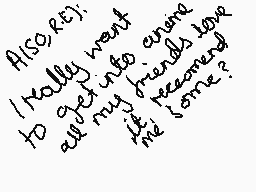 AlSO, REJ:
I really want
to get into anime
all my friends love
it recomend
me some?